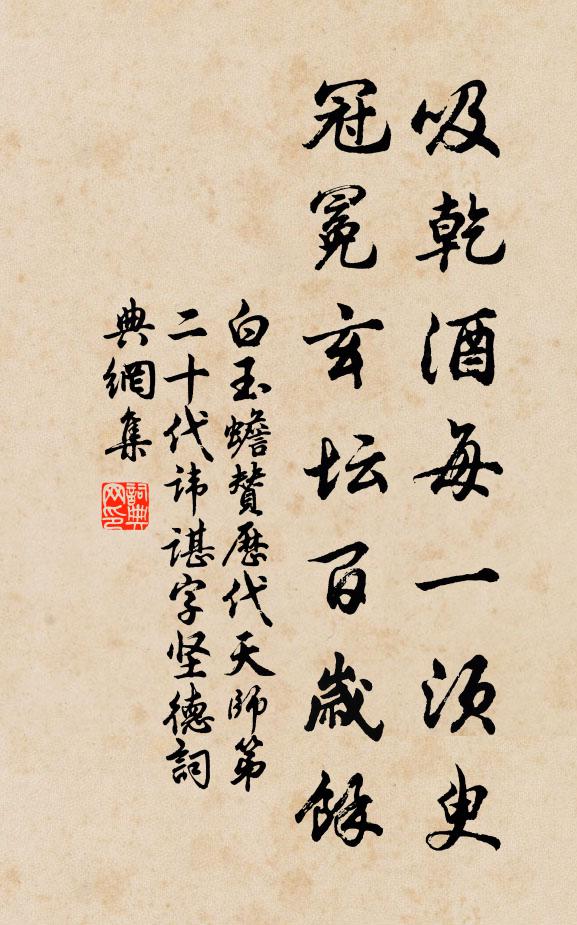 吸乾酒每一須叟
冠冕玄坛百歲餘
白玉蟾贊歷代天師第
二十代諱諶字坚德詞
典網集
詞典
网印